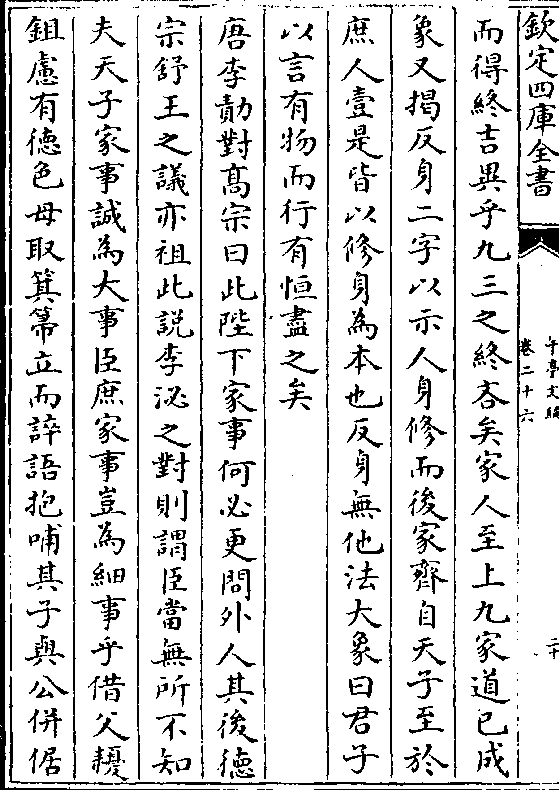 欽定四庫全書
午亭文編
卷二十六
二十
而得終吉異乎九三之終吝矣家人至上九家道已成
象又揭反身二字以示人身修而後家齊自天子至於
庶人壹是皆以修身為本也反身無他法大象曰君子
以言有物而行有恒盡之矣
唐李勣對髙宗曰此陛下家事何必更問外人其後德
宗舒王之議亦祖此説李泌之對則謂臣當無所不知
夫天子家事誠為大事臣庶家事豈為細事乎借父耰
鉏慮有徳色母取箕箒立而誶語抱哺其子與公併倨